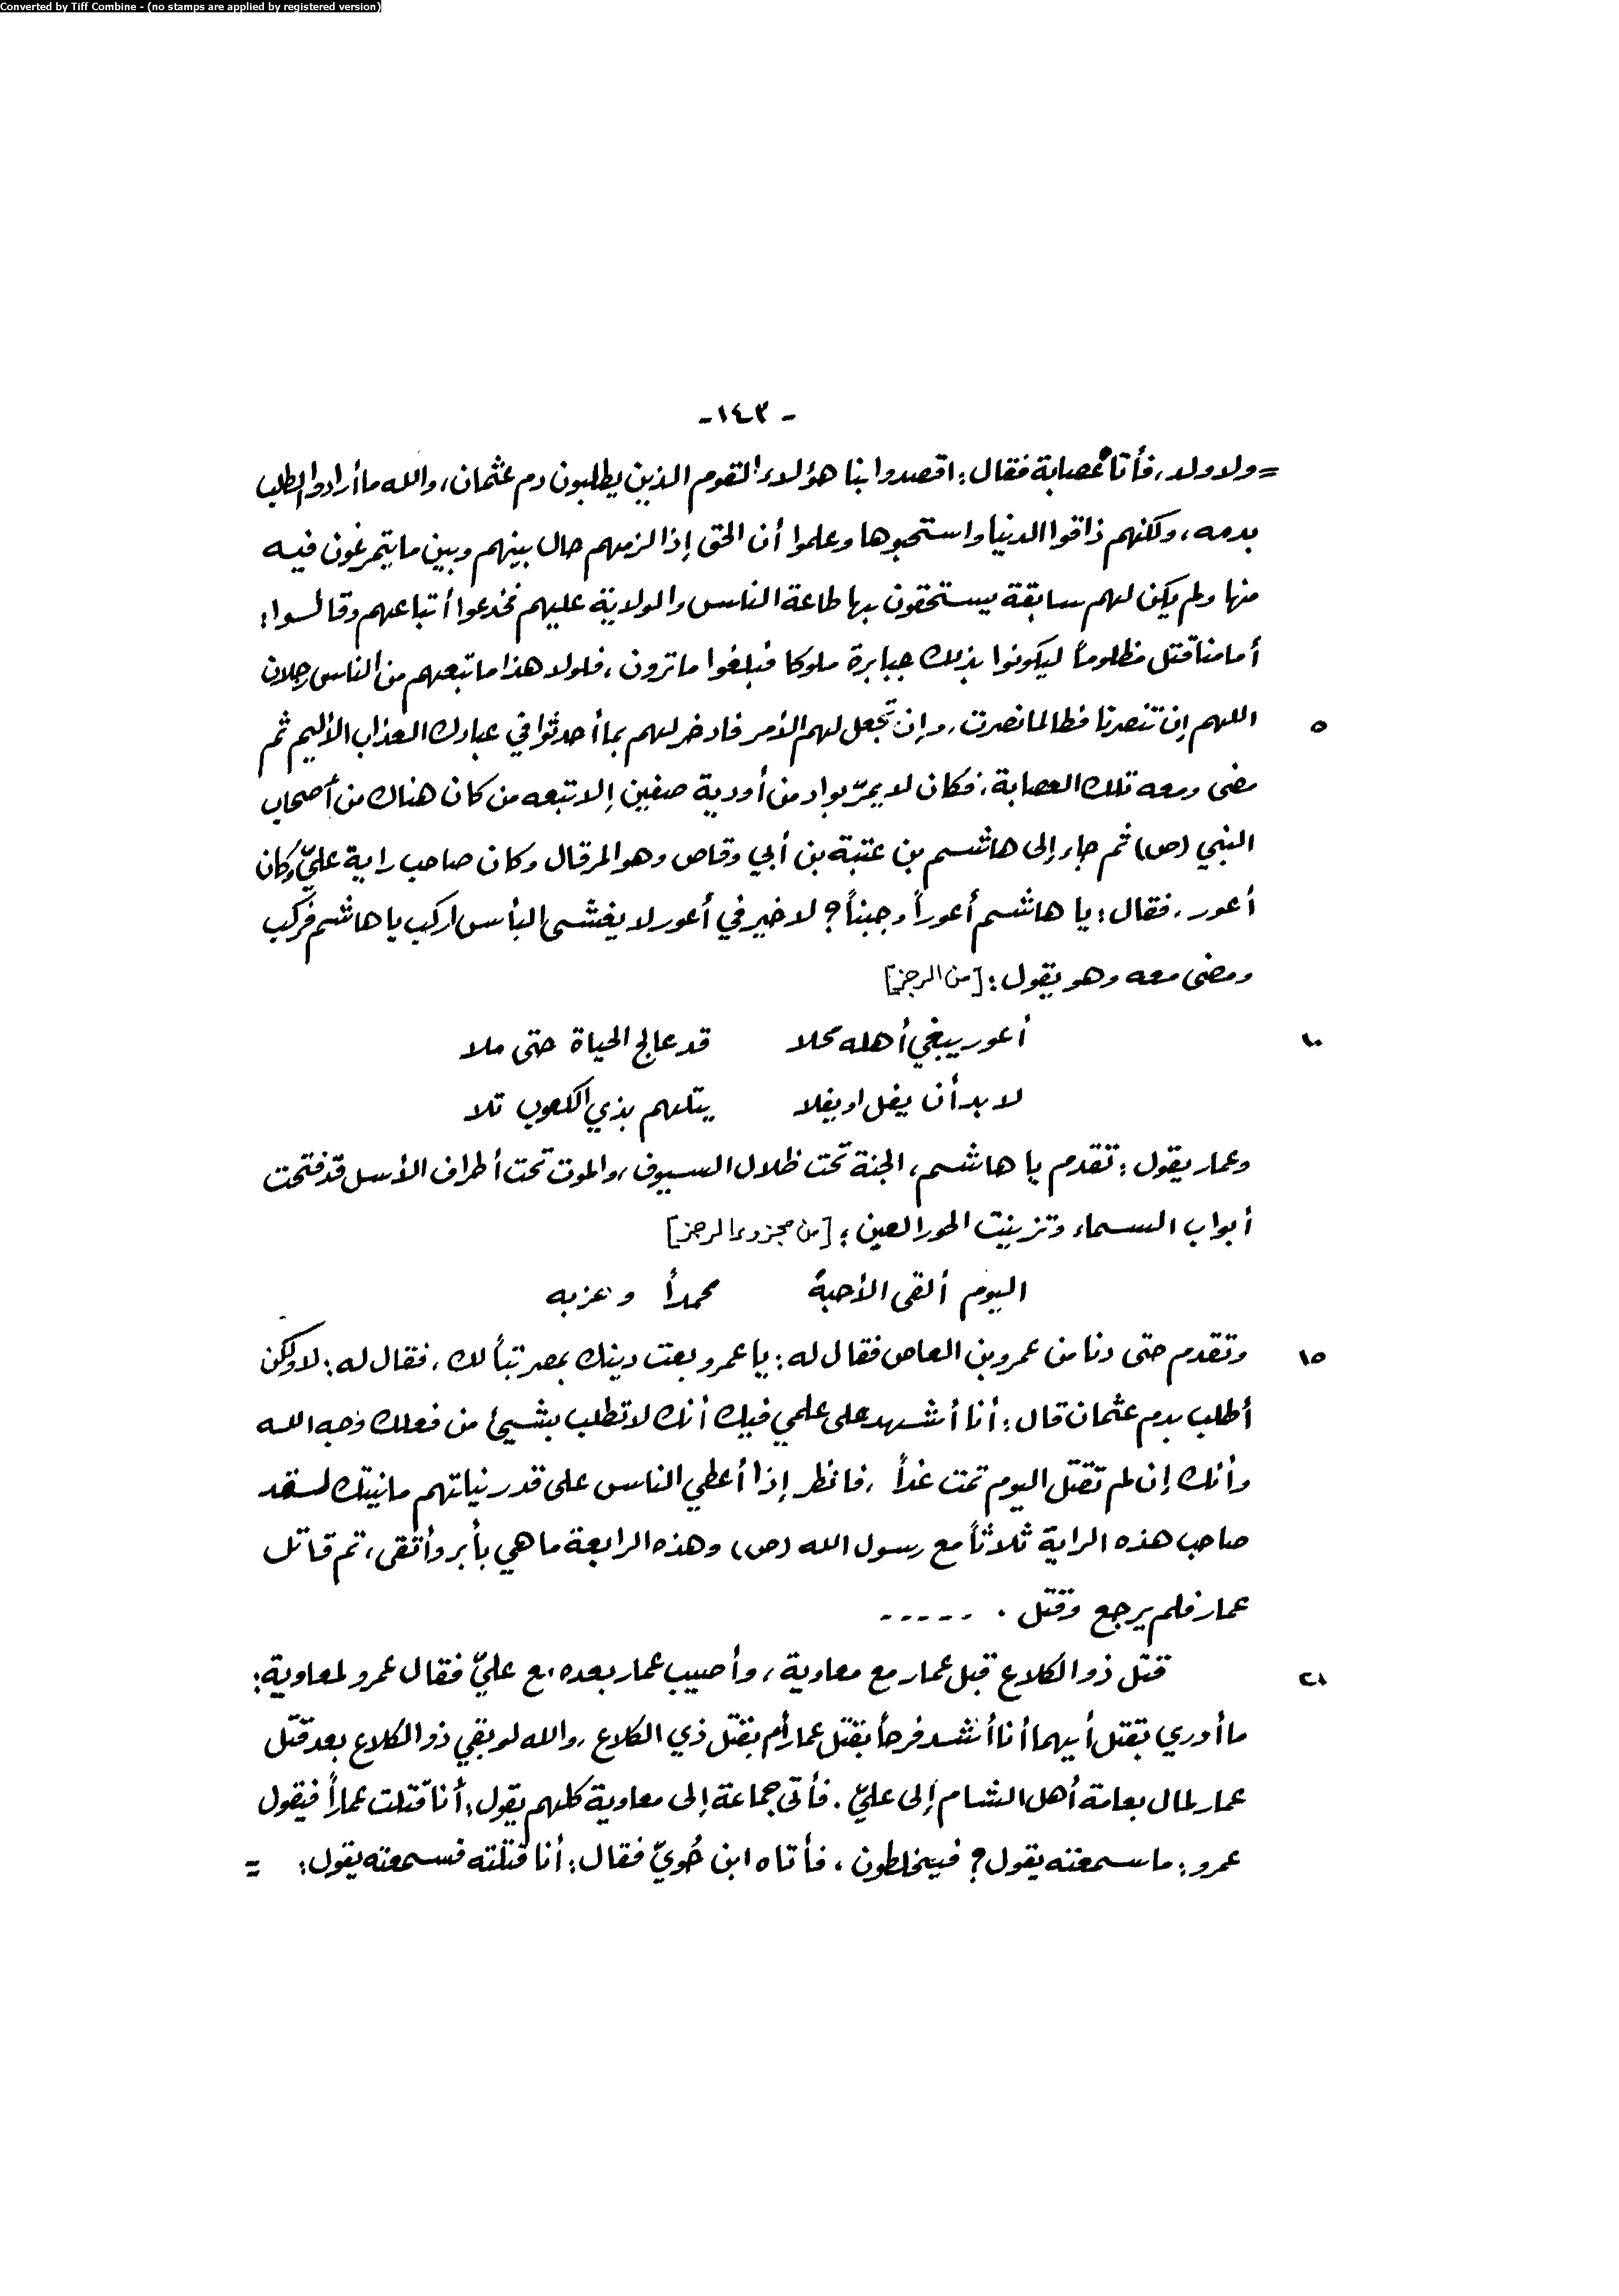 Converted by Tiff Combine - (no stamps are applied by registered version)
- ١٤٣ -
= ولا ولد، فأتاه عصابة فقال: اقصدوا بنا هؤلاء القوم الذين يطلبون دم عثمان، والله ما أرادوا الطلب
بدمه، ولكنهم ذاقوا الدنيا واستحبوها وعلموا أن الحق إذا لزمهم حال بينهم وبين ما يتمرغون فيه
منها ولم يكن لهم سابقة يستحقون بها طاعة الناس والولاية عليهم فخدعوا أتباعهم وقالسوا:
أمامنا قتل مظلوماً ليكونوا بذلك جبابرة ملوكا فبلغوا ما ترون، فلولا هذا ما تبعهم من الناس رجلان
٥ اللهم إن تنصرنا فطالما نصرت، وإن تجعل لهم الأمر فادخر لهم بما أحدثوا في عبادك العذاب الأليم ثم
مضى ومعه تلك العصابة، فكان لا يمرّ بواد من أودية صفين إلا تبعه من كان هناك من أصحاب
النبي (ص) ثم جاء إلى هاشم بن عتبة بن أبي وقاص وهو المرقال وكان صاحب راية عليّ وكان
أعور، فقال: يا هاشم أعوراً وجبناً؟ لا خير في أعور لا يغشى البأس اركب يا هاشم فركب
ومضى معه وهو يقول: [من الرجز]
١٠ أعور يبغي أهله محلا قد عالج الحياة حتى ملا
لا بد أن يفل او يفلا يتلهم بذي الكعوب تلا
وعمار يقول: تقدم يا هاشم، الجنة تحت ظلال السيوف، والموت تحت أطراف الأسل قد فتحت
أبواب السماء وتزينت الحور العين: [من مجزوء الرجز]
اليوم ألقى الأحبة محمداً وحزبه
١٥ وتقدم حتى دنا من عمرو بن العاص فقال له: يا عمرو بعت دينك بمصر تباً لك، فقال له: لا ولكن
أطلب بدم عثمان قال: أنا أشهد على علمي فيك أنك لا تطلب بشيئ من فعلك وجه الله
وأنك إن لم تقتل اليوم تمت غداً، فانظر إذا أعطي الناس على قدر نياتهم ما نيتك لسقد
صاحب هذه الراية ثلاثاً مع رسول الله (ص) وهذه الرابعة ما هي بأبر وأتقى، ثم قاتل
عمار فلم يرجع وقتل . -----
قتل ذو الكلاع قبل عمار مع معاوية، وأصيب عمار بعده مع عليّ فقال عمرو لمعاوية:
ما أدري بقتل أيهما أنا أشد فرحاً بقتل عمار أم بقتل ذي الكلاع، والله لو بقي ذو الكلاع بعد قتل
عمار لمال بعامة أهل الشام إلى عليّ. فأتى جماعة إلى معاوية كلهم يقول: أنا قتلت عماراً فيقول
عمرو: ما سمعته يقول؟ فيخلطون، فأتاه ابن حُويّ فقال: أنا قتلته فسمعته يقول: =